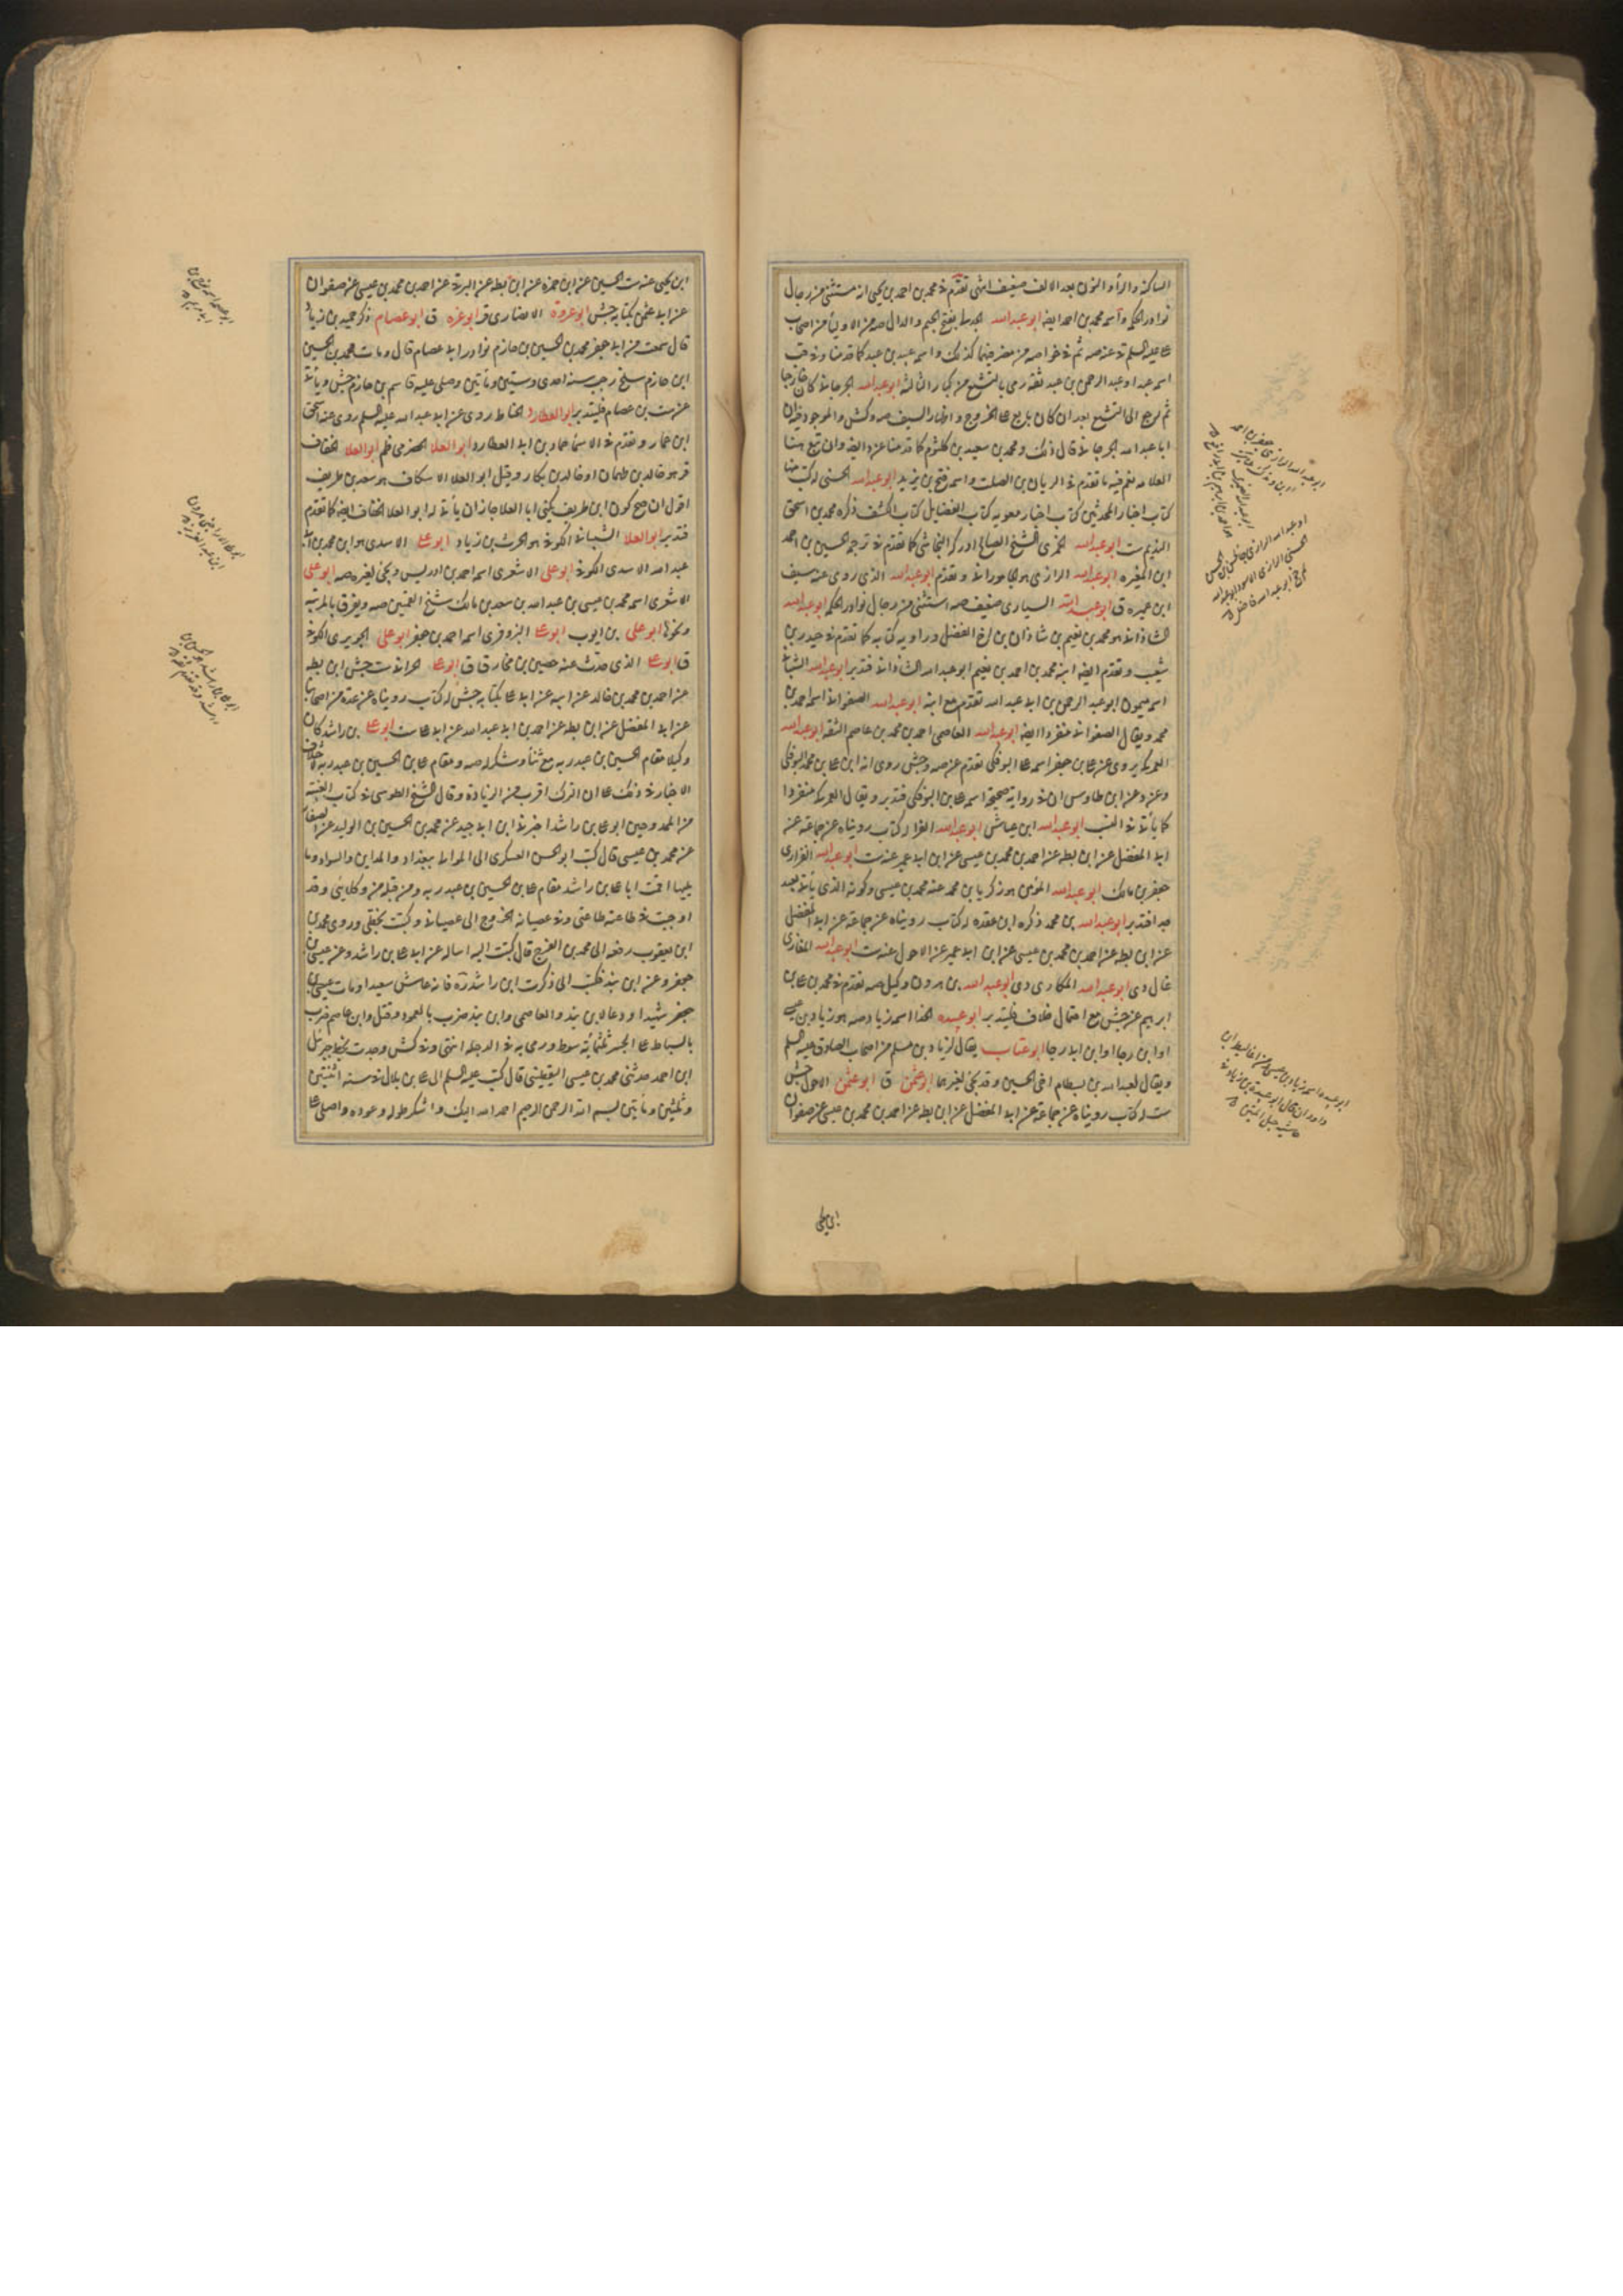 الساكنة والراء والنون بعد الالف ضعيف انتهى تقدم في محمد بن احمد بن يحيى انه مستثنى من رجال
نوادر الحكمة واسمه محمد بن احمد ايضا ابو عبد الله الجدلي بفتح الجيم والدال صه من الاولياء من اصحاب
اسمه عبد او عبد الرحمن بن عبد ثقة رمى بالتشيع من كبار الثالثة ابو عبد الله الجرجاني كان خارجيا
ثم رجع الى التشيع بعد ان كان بايع على الخروج واظهار السيف صه وكش والموجود فيه ان
ابا عبد الله الجرجاني قال ذلك ومحمد بن سعيد بن كلثوم كما قدمنا عن د ايضا وان تبع هنا
العلامة نعم فيه ما تقدم في الريان بن الصلت واسمه فتح بن يزيد ابو عبد الله الحسني له كتب منها
كتاب اخبار المحدثين كتاب اخبار معوية كتاب الفضايل كتاب الكشف ذكره محمد بن اسحق
النديم ست ابو عبد الله الخمري الشيخ الصالح ادركه النجاشي كما تقدم في ترجمة الحسين بن احمد
ابن المغيرة ابو عبد الله الرازي هو الجاموراني وتقدم ابو عبد الله الذي روى عنه سيف
ابن عميرة ق ابو عبد الله السياري ضعيف صه استثنى من رجال نوادر الحكمة ابو عبد الله
الشاذاني هو محمد بن نعيم بن شاذان بن اخ الفضل وراوية كتابه كما تقدم في حيدر بن
شعيب وتقدم ايضا ابنه محمد بن احمد بن نعيم ابو عبد الله الشاذاني فتدبر ابو عبد الله الشيباني
اسمه ميمون ابو عبد الرحمن بن ابي عبد الله تقدم مع ابنه ابو عبد الله الصفواني اسمه احمد بن
محمد ويقال الصفواني منفردا ايضا ابو عبد الله العاصمي احمد بن محمد بن عاصم الثقة ابو عبد الله
العمركي يروى عن علي بن جعفر اسمه علي البوفكي تقدم عن صه وجش روى انه ابن علي بن محمد البوفكي
وعن د وعن ابن طاوس ان في رواية صحيحة اسمه علي بن البوفكي فتدبر ويقال العمركي منفردا
كما يأتي في اللقب ابو عبد الله ابن عياش ابو عبد الله الفرا له كتاب رويناه عن جماعة عن
ابي المفضل عن ابن بطة عن احمد بن محمد بن عيسى عن ابن ابي عمير عنه ست ابو عبد الله الفزاري
جعفر بن مالك ابو عبد الله المؤمن هو زكريا بن محمد عنه محمد بن عيسى وكونه الذي يأتي بعيد
جدا فتدبر ابو عبد الله بن محمد ذكره ابن عقدة له كتاب رويناه عن جماعة عن ابي المفضل
عن ابن بطة عن احمد بن محمد بن عيسى عن ابن ابي عمير عن الاحول عنه ست ابو عبد الله المغازي
غال دي ابو عبد الله المكاري دي ابو عبد الله بن هرون وكيل صه تقدم في محمد بن علي بن
ابرهيم عن جش مع احتمال خلاف فليتدبر ابو عبيدة الحذا اسمه زياد صه هو زياد بن عيسى
او ابن رجا او ابن ابي رجا ابو عتاب يقال لزياد بن مسلم من اصحاب الصادق عليه السلم
ويقال لعبد الله بن بسطام اخي الحسين وقد يكنى لغيرهما ابو عثمن ق ابو عثمن الاحول جش
ست له كتاب رويناه عن جماعة عن ابي المفضل عن ابن بطة عن احمد بن محمد بن عيسى عن صفوان
ابن يحيى عنه ست الحسين عن ابن حمزة عن ابن بطة عن البرقي عن احمد بن محمد بن عيسى عن صفوان
عن ابي عثمن بكتابه جش ابو عروة الانصاري قر ابو عزة ق ابو عصام ذكره حميد بن زياد
قال سمعت من ابي جعفر محمد بن الحسين بن حازم نوادر ابي عصام قال ومات محمد بن الحسين
ابن حازم سلخ رجب سنة احدى وستين ومأتين وصلى عليه قاسم بن حازم جش ويأتي
عن ست بن عصام فليتدبر ابو العطارد الحناط روى عن ابي عبد الله عليه السلم روى عنه اسحق
ابن عمار وتقدم في الاسماء حماد بن ابي العطارد ابو العلا الحضرمي ظم ابو العلا الخفاف
قر هو خالد بن طهمان او خالد بن بكار وقيل ابو العلا الاسكاف هو سعد بن طريف
اقول ان صح كون ابن طريف يكنى ابا العلا جاز ان يأتي له ابو العلا الخفاف ايضا كما تقدم
فتدبر ابو العلا الشيباني الكوفي هو الحرث بن زياد ابو علي الاسدي هو ابن محمد بن ابي
عبد الله الاسدي الكوفي ابو علي الاشعري اسمه احمد بن ادريس ويكنى لغيره صه ابو علي
الاشعري اسمه محمد بن عيسى بن عبد الله بن سعد بن مالك شيخ القميين صه ويفرق بالمرتبة
ونحوها ابو علي بن ايوب ابو علي البزوفري اسمه احمد بن جعفر ابو علي الجريري الكوفي
ق ابو علي الذي حدث عنه حصين بن مخارق ق ابو علي الحراني ست جش ابن بطة
عن احمد بن محمد بن خالد عن ابيه عن ابي علي بكتابه جش له كتاب رويناه عن عدة من اصحابنا
عن ابي المفضل عن ابن بطة عن احمد بن ابي عبد الله عن ابي علي ست ابو علي بن راشد كان
وكيلا مقام الحسين بن عبد ربه مع ثناء وشكر له صه ومقام علي بن الحسين بن عبد ربه على خلاف
الاخبار في ذلك على ان الترك اقرب من الزيادة وقال الشيخ الطوسي في كتاب الغيبة
من الممدوحين ابو علي بن راشد اخبرني ابن ابي جيد عن محمد بن الحسين بن الوليد عن الصفار
عن محمد بن عيسى قال كتب ابو الحسن العسكري الى الموالي ببغداد والمداين والسواد وما
يليها اقمت ابا علي بن راشد مقام علي بن الحسين بن عبد ربه ومن قبله من وكلائي وقد
اوجبت في طاعته طاعتي وفي عصيانه الخروج الى عصياني وكتبت بخطي وروى محمد بن
ابن يعقوب رفعه الى محمد بن الفرج قال كتبت اليه اساله عن ابي علي بن راشد وعن عيسى بن
جعفر وعن ابن بند فكتب الى ذكرت ابن راشد ره فانه عاش سعيدا ومات عيسى بن
جعفر شهيدا ودعا لابن بند والعاصمي وابن بند ضرب بالعمود وقتل وابن عاصم ضرب
بالسياط على الجسر ثلثمائة سوط ورمى به في الدجلة انتهى وفي كش وجدت بخط جبرئيل
ابن احمد حدثني محمد بن عيسى اليقطيني قال كتب عليه السلم الى علي بن بلال في سنة اثنتين
وثلثين ومأتين بسم الله الرحمن الرحيم احمد الله اليك واشكر طوله وعوده واصلي على